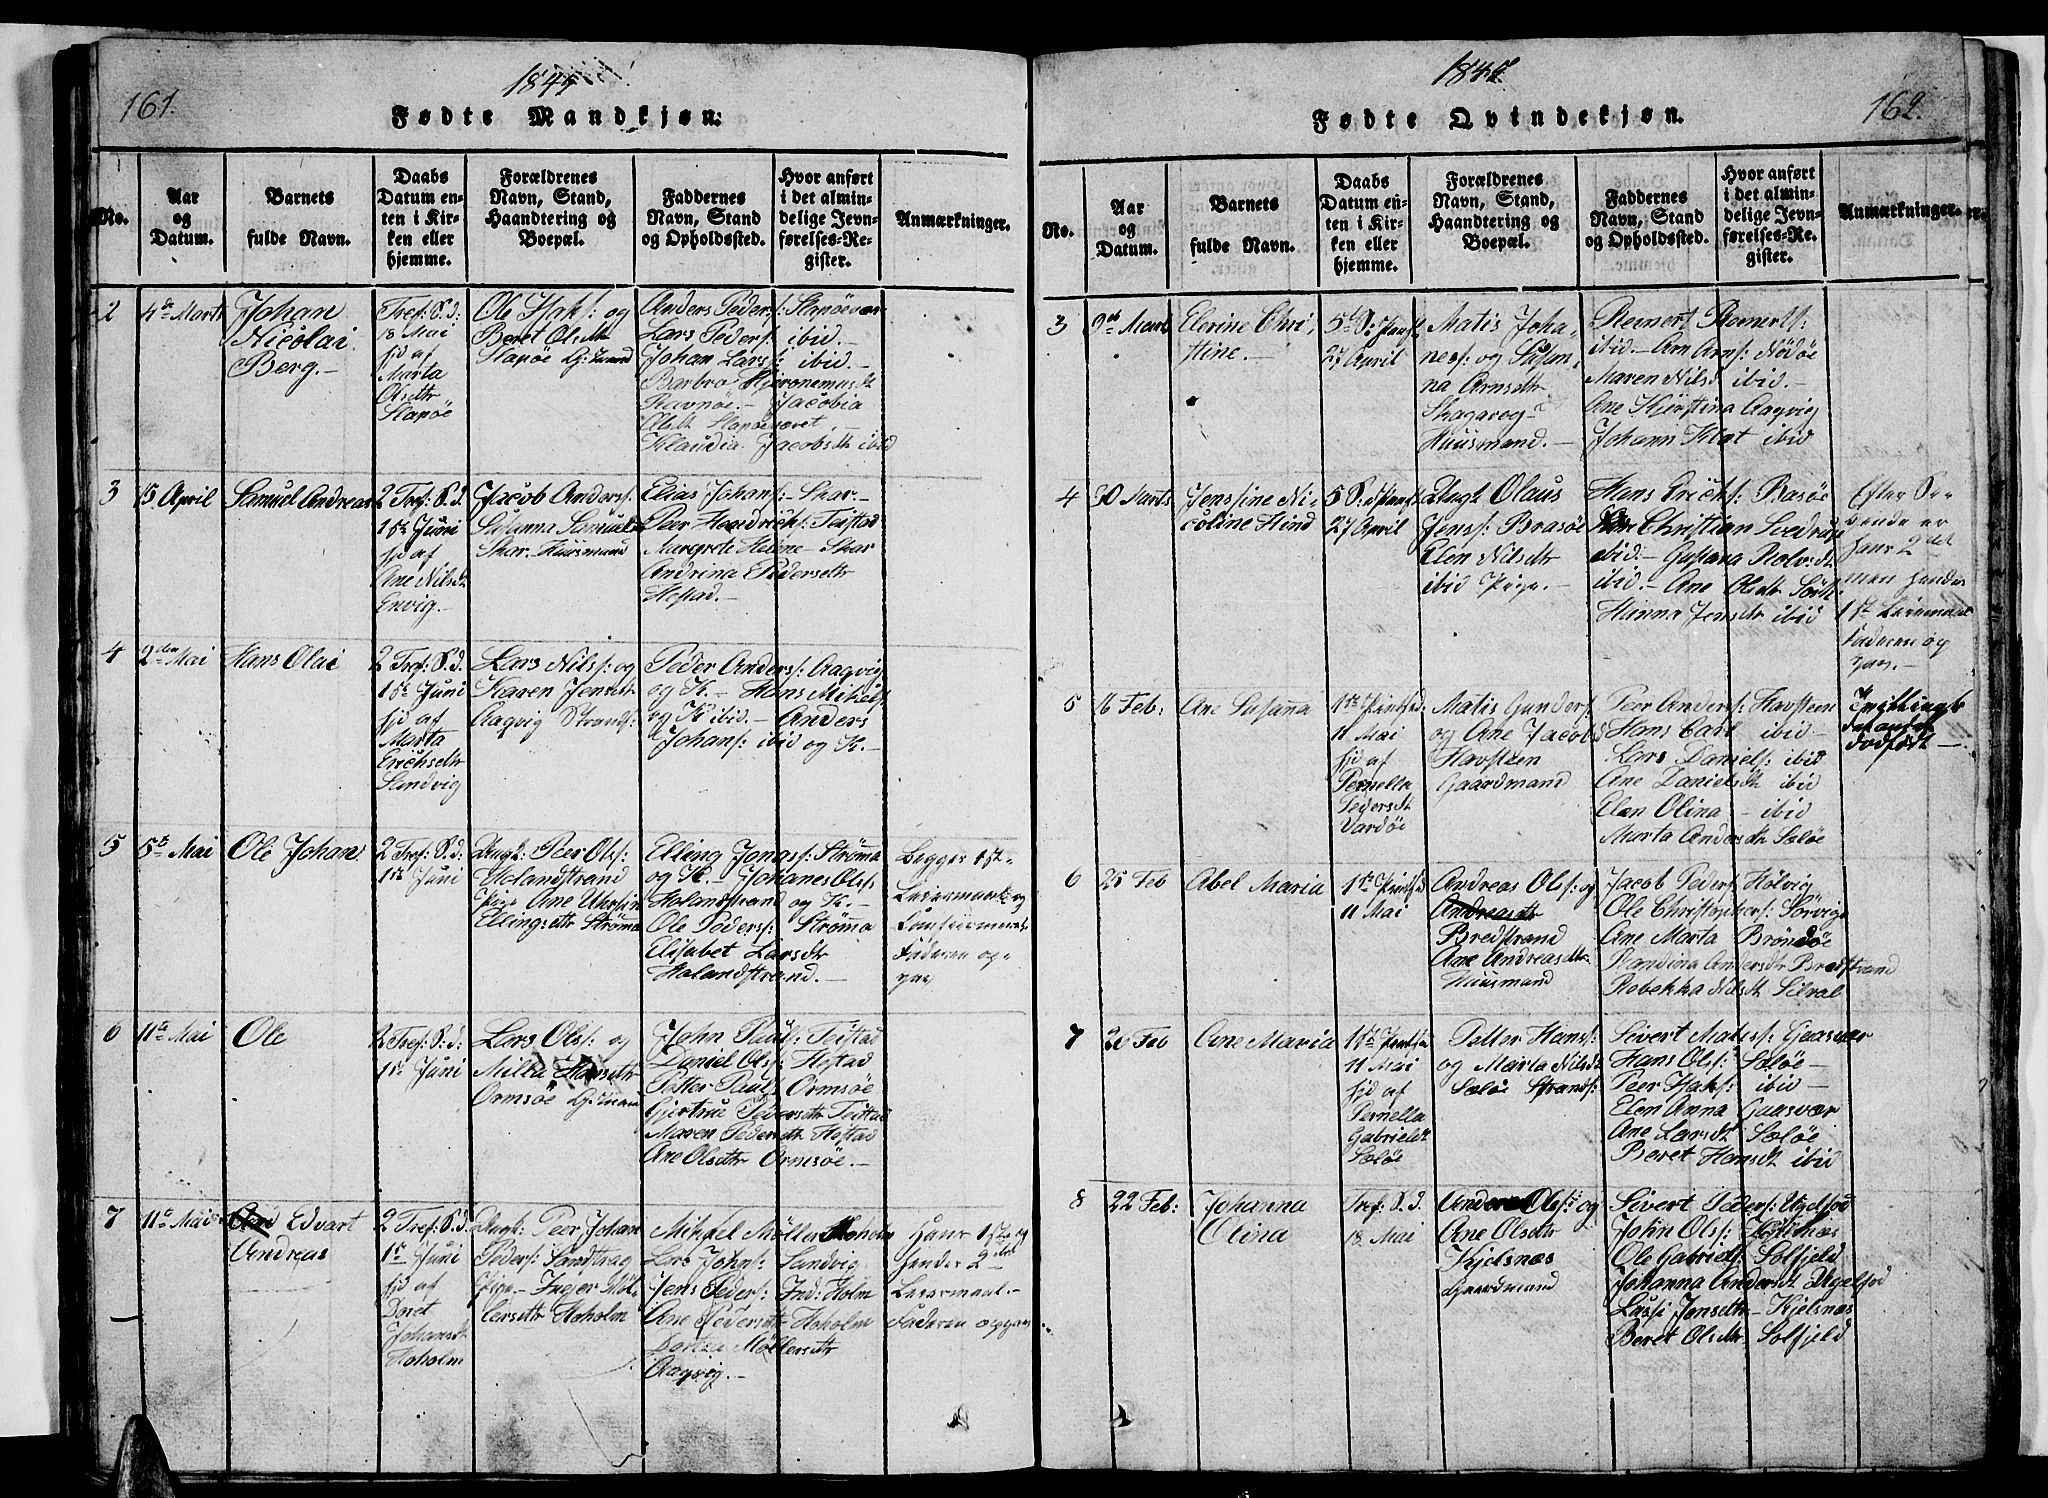 161.
1845
Fødte Mandkjøn.
No.
Aar og Datum.
Barnets fulde Navn.
Daabs Datum enten i Kirken eller hjemme.
Forældrenes Navn, Stand, Haandtering og Boepæl.
Faddernes Navn, Stand og Opholdssted.
Hvor anført i det almindelige Jevnførelses-Register.
Anmærkninger.
2
4de Marts
Johan
Nicolai
Berg.-
Tref: S. d:
18 Mai
hjd af
Marta
Olsdtr
Slapöe
Ole Isaks: og
Beret Olsdtr
Slapöe Gmand
Anders Peders: Slapöevær
Lars Peders: ibid.-
Johan Lars: ibid.-
Barbro Hjeronemusdt
Ravnöe.- Jacobia
Olsdt Slapöeværet.-
Klaudia Jacobsdt ibid
3
15 April
Samuel Andreas
2 Tref: S. d.
1ste Juni
hjd af
Ane Nilsdt
Envig.-
Jacob Anders:
Susanna Samuelsdt
Skar. Huusmand
Elias Johans:- Skar:
Peer Hendrichs: Teistad
Margrete Helene- Skar
Andrina Pedersdtr
Hestad.-
4
2den Mai
Hans Olai
2 Tref: S. d.
1ste Juni
hjd af
Marta
Erichsdtr
Sandvig
Lars Nils: og
Karen Jensdtr
Aagvig Strands:
Peder Anders: Aagvig
og K.- Hans Mikals:
og K ibid.- Anders
Johans: ibid og K.-
5
5te Mai
Ole Johan
2 Tref: S. d:
1ste Juni
Ungk: Peer Ols:
Holandstrand
Pige Ane
Ellingsdtr Strömma
Elling Jonas: Strömma
og K.- Johanes Ols:
Holandstrand og K.-
Ole Peders: Strömma
Elisabet Larsdtr
Holandstrand.-
Begges 1ste
Leiermaal og
Faderen op-
give
6
11te Mai
Ole
2 Tref: S. d:
1ste Juni
Lars Ols: og
Milla Hansdtr
Ormsöe Gmand
John Pauls: Teistad
Daniel Ols: Hestad
Petter Pauls: Ormsöe
Gjertrue Pedersdtr Teistad
Maren Pedersdtr Hestad
Ane Olsdtr Ormsöe.-
7
11te Mai
Edvart
Andreas
2 Tref: S. d.
1ste Juni
hjd af
Beret
Johansdt
Hoholm
Ungk: Peer Johan
Peders: Sandstrag
Pige- Inger Möl-
lersdtr Hoholm
Mikkel Möller
Lars Johns: Sandvig
Jens Peders: Ind: Holm
Ane Pedersdtr Hoholm
Dortea Möllersdtr
Aagvig.-
Hans 1ste og
hendes 2det
Leiermaal.-
Faderen opgiven
162.
1845.
Fødte Qvindekjøn.
No.
Aar og Datum.
Barnets fulde Navn.
Daabs Datum enten i Kirken eller hjemme.
Forældrenes Navn, Stand, Haandtering og Boepæl.
Faddernes Navn, Stand og Opholdssted.
Hvor anført i det almindelige Jevnførelses-Register.
Anmærkninger.
3
9de Marts
Elerine Chri-
stine.-
5te S:
27 April
Matis Joha-
nes: og Susan-
na Arnsdtr
Skagavog-
Huusmand.-
Reinert Reinerts:
ibid.- Arn Arns: Nödöe
Maren Nilsdt ibid.-
Ane Kjerstina Aagvig
Johann Klat ibid
4
30 Marts
Jensine Ni-
coline Hind
5 S.
27 April
Ungk: Olaus
Jens: Brasöe
Elen Nilsdtr
ibid Pige.-
Hans Erichs: Brasöe
Christian Svedrup
ibid.- Gusava Rolvsdt
ibid.- Ane Olsdtr
Hanna Jensdtr ibid
Efter Si-
vende er
hans 2det
men hendes
1ste Leiermaal
Faderen og
5
6 Feb:
Ane Susanna
1ste
11 Mai
hjd af
Pernella
Pedersdt
Vardöe
Matis Gunders:
og Ane Jacobsd
Havsteen
Gaardmand
Peer Anders: Havsteen
Hans Carl ibid.-
Lars Daniels: ibid
Ane Danielsdt ibid
Elen Olina - ibid
Marta Andersdt Solöe
Tvilling
det andet
dodfödt
6
25 Feb
Abel Maria
1ste
11 Mai
Andreas Ols: og
Andreasdtr
Bredstrand
Ane Andreasdtr
Huusmand
Jacob Peders: Holvig
Ole Christophers: Sörvige
Ane Marta Bröndöe
Randina Andersdtr Bredstrand
Rebekka Nilsdt Silval
7
26 Feb
Ane Maria
1ste
11 Mai
hjd af
Pernella
Gabrielsdt
Soløe
Petter Hans:
og Marta Nilsdt
Soløe Strands:
Sivert Matis: Gaasvær
Hans Ols: Soløe -
Peer Isaks: ibid -
Elen Anna Gaasvær
Ane Larsdt Soløe
Beret Hansdt ibid
8
22 Feb:
Johanna
Olina
Tref: S. d.
18 Mai
Anders Ols: og
Ane Olsdtr
Kjelsnæs
Gaardmand
Sivert Peders: Ugelfiod
John Ols:
Ole Gabriels: Solfjeld
Johanna Andersdt Ugelfiod
Lussi Jensdtr- Kjelsnæs
Beret Olsdtr Solfjeld